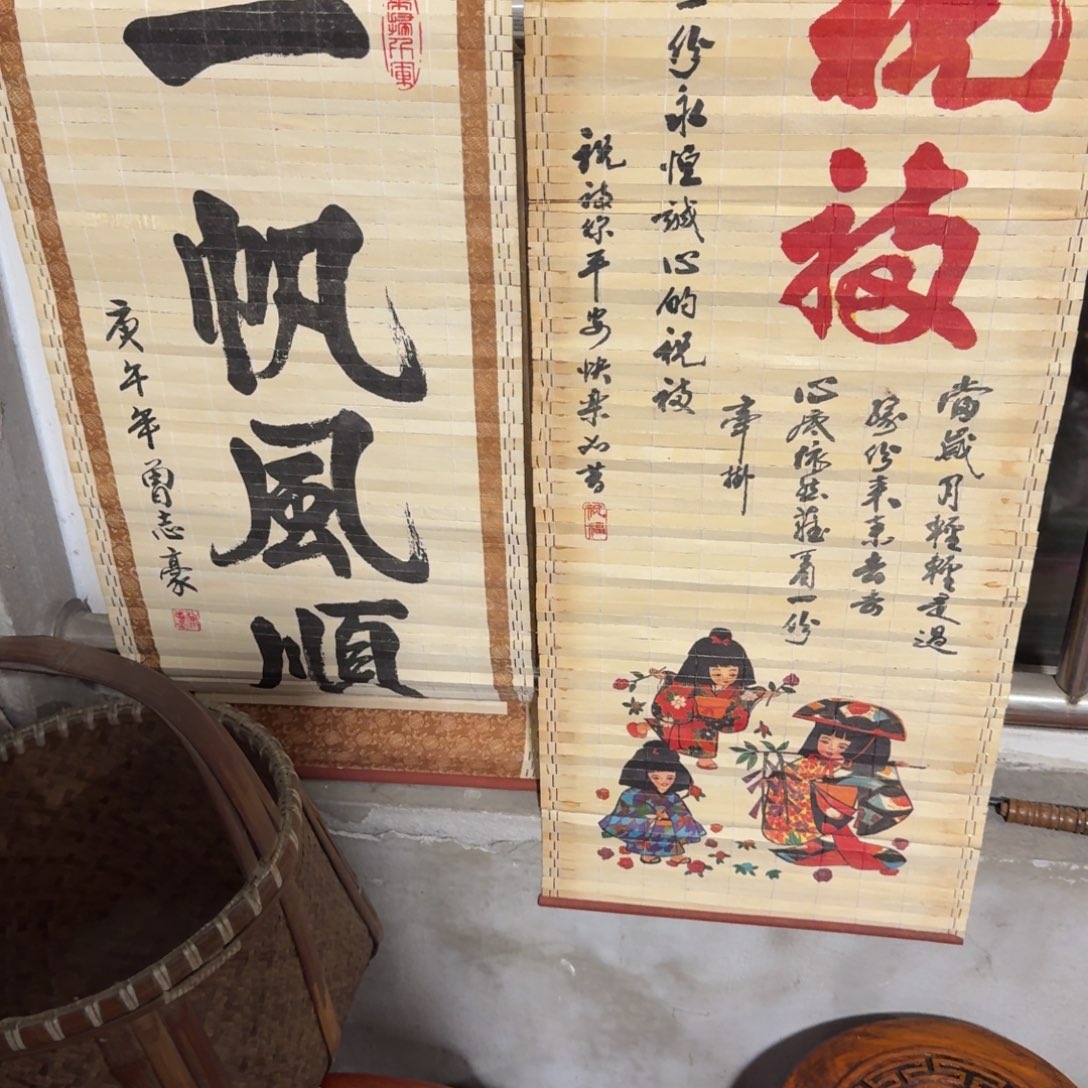 祝福
當歲月輕輕走過
緣份來來去去
心底依然藏著一份
牽掛
一份永恒誠心的祝福
祝福你平安快樂如昔
祝福
一帆風順
庚午年曾志豪